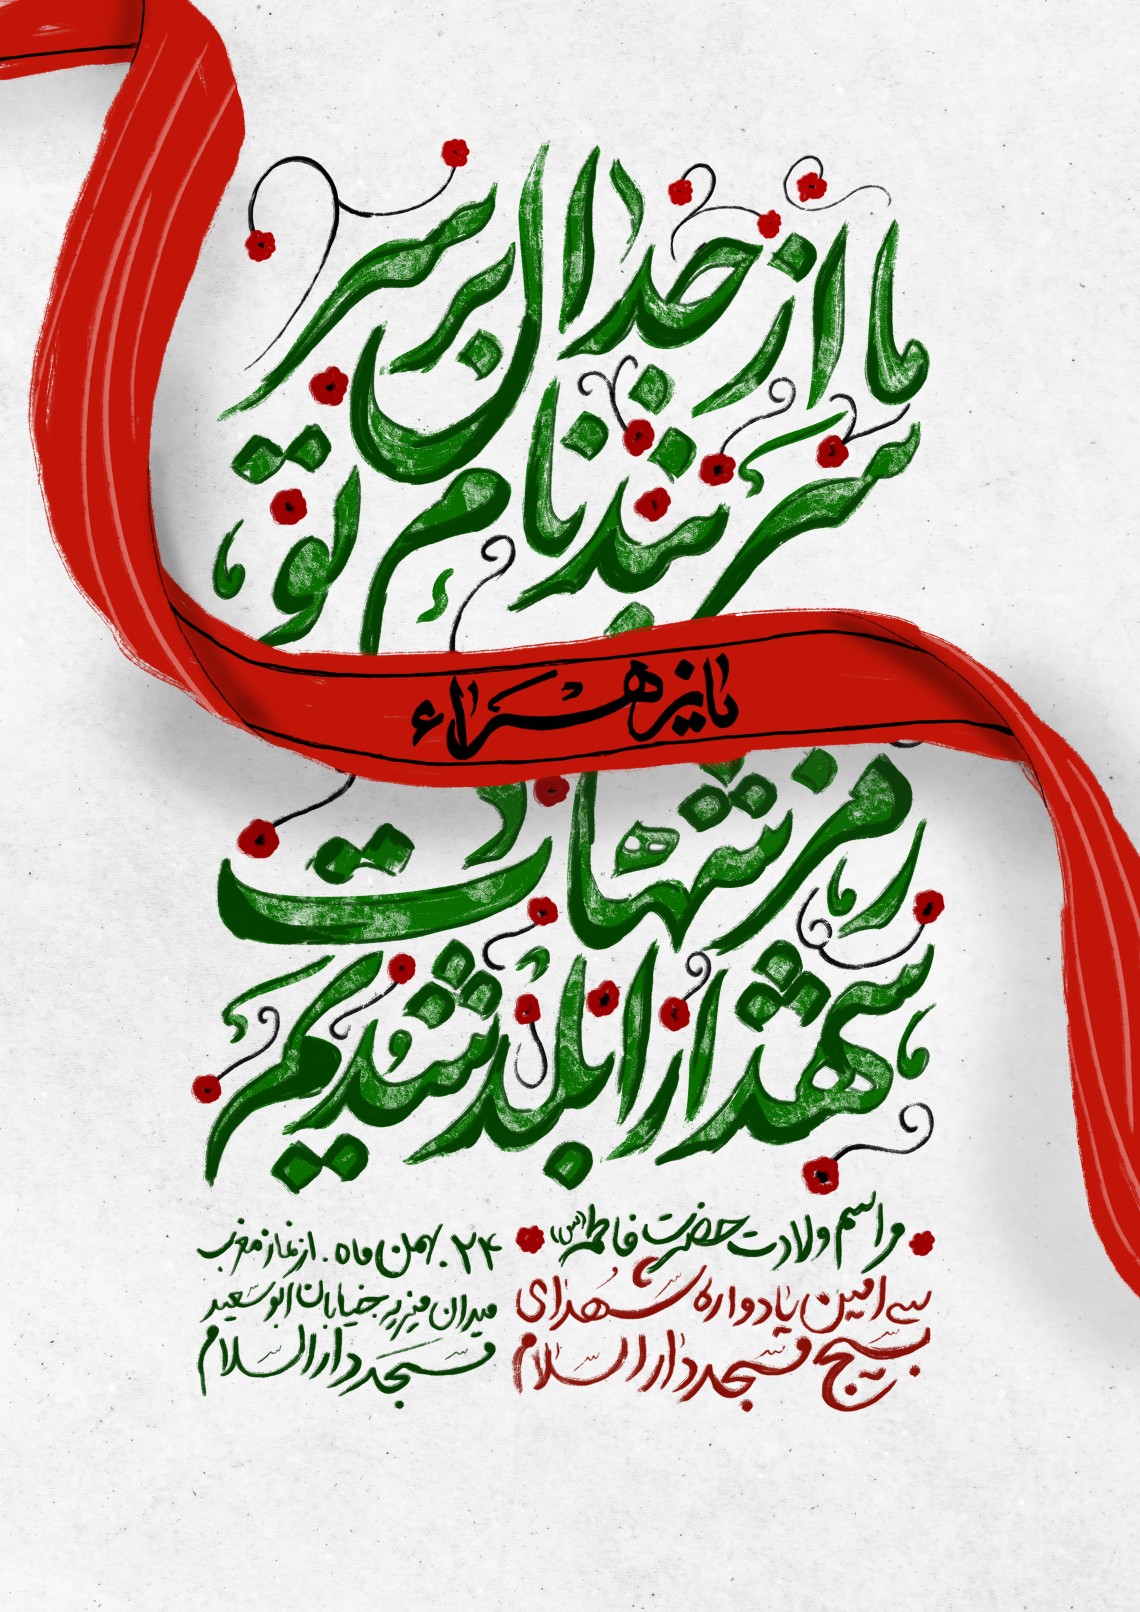 ما از جدال بر سر
سربند نام تو
یازهراء
رمز شهادت
شهدا را بلد شدیم
مراسم ولادت حضرت فاطمه (س)
سی امین یادواره شهدای
بسیج مسجد دارالسلام
۲۴ بهمن ماه . از نماز مغرب
میدان منیریه خیابان ابوسعید
مسجد دارالسلام